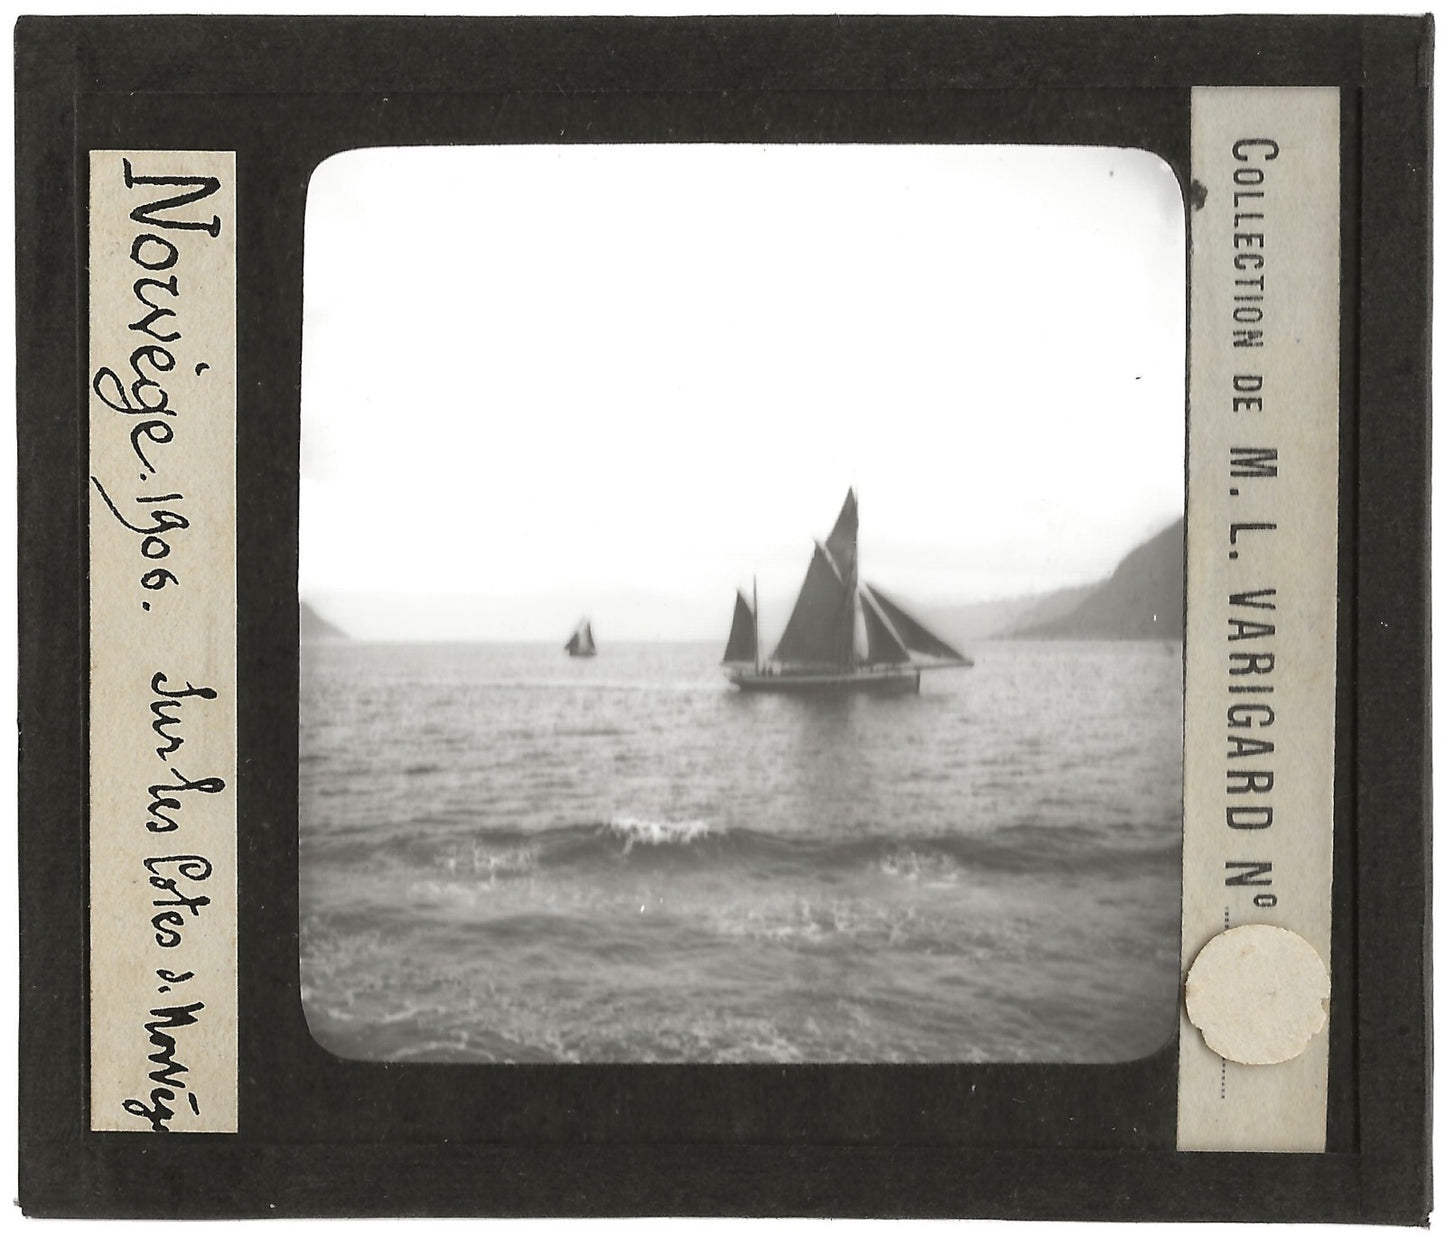 Norvège. 1906. Sur les Côtes de Norvèg
COLLECTION DE M. L. VARIGARD Nº